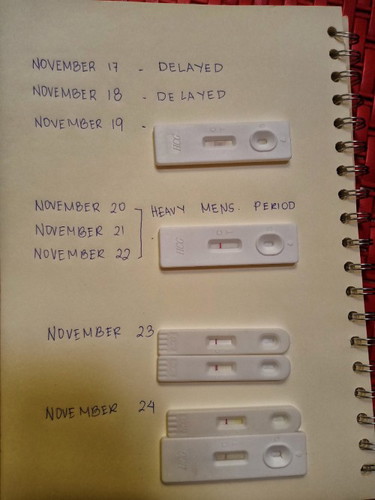 NOVEMBER 17 - DELAYED
NOVEMBER 18 - DELAYED
NOVEMBER 19 -
NOVEMBER 20 HEAVY MENS. PERIOD
NOVEMBER 21
NOVEMBER 22
NOVEMBER 23
NOVEMBER 24